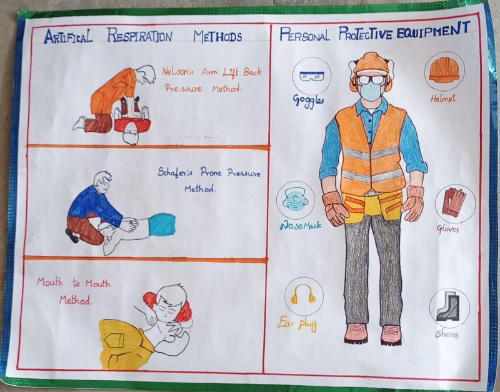 ARTIFICAL RESPIRATION METHODS
Nelson's Arm Lift Back
Pressure Method.
Schafer's Prone Pressure
Method.
Mouth to Mouth
Method.
PERSONAL PROTECTIVE EQUIPMENT
Goggles
Helmet
Nose Mask
Gloves
Ear plug
Shoes